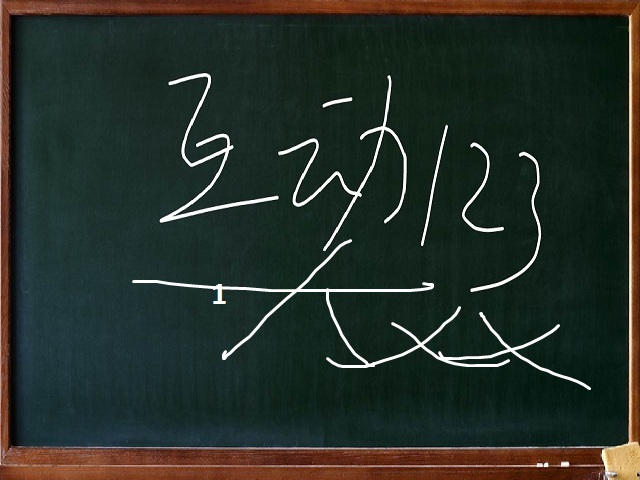 互动123
1